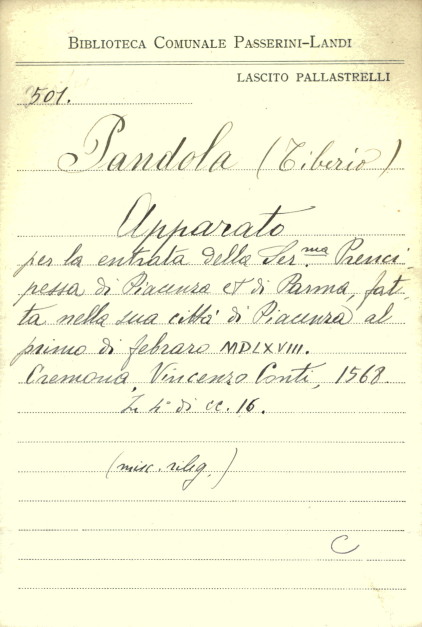 BIBLIOTECA COMUNALE PASSERINI-LANDI
LASCITO PALLASTRELLI
501.
Pandola (Tiberio)
Apparato
per la entrata della Ser.ma Prenci-
pessa di Piacenza et di Parma, fat-
ta nella sua città di Piacenza al
primo di febraro MDLXVIII.
Cremona, Vincenzo Conti, 1568.
In 4° di cc. 16.
(misc. rileg.)
C